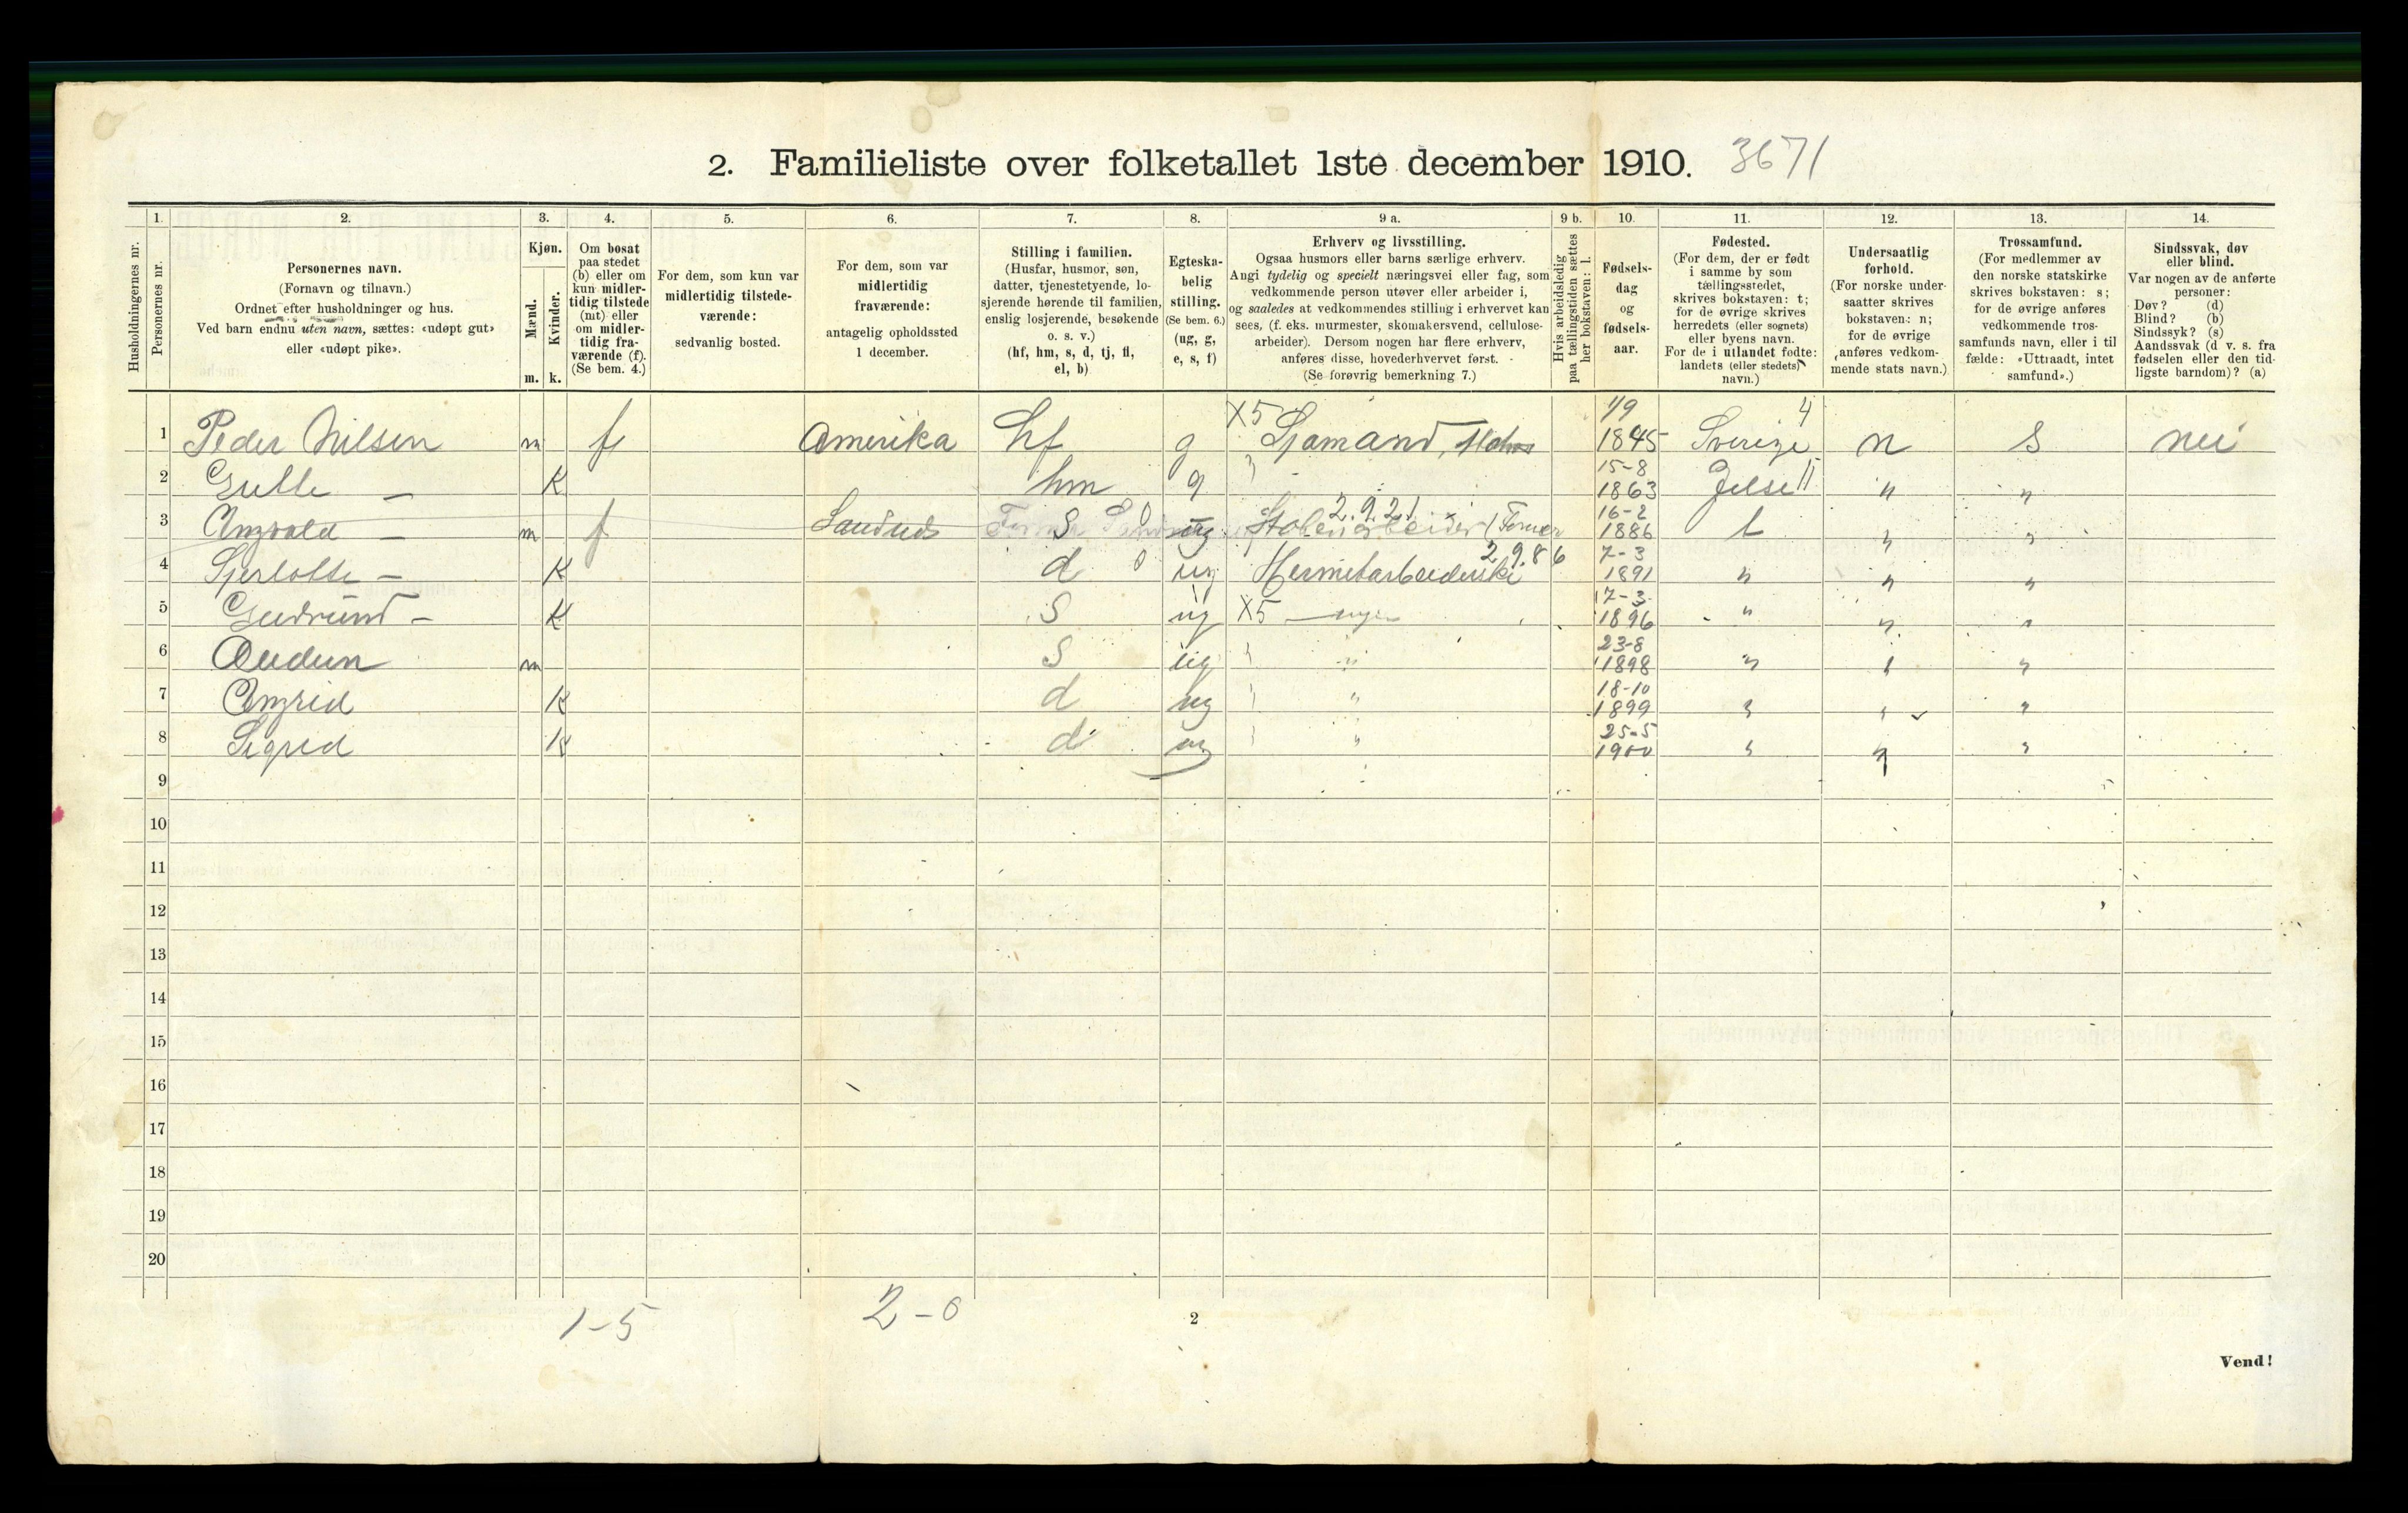 2. Familieliste over folketallet 1ste december 1910. 3671
1. 2. 3. 4. 5. 6. 7. 8. 9 a. 9 b. 10. 11. 12. 13. 14.
Husholdningernes nr.
Personernes nr.
Personernes navn.
(Fornavn og tilnavn.)
Ordnet efter husholdninger og hus.
Ved barn endnu uten navn, sættes: «udøpt gut»
eller «udøpt pike».
Kjøn.
Mænd.
Kvinder.
m. k.
Om bosat
paa stedet
(b) eller om
kun midler-
tidig tilstede
(mt) eller
om midler-
tidig fra-
værende (f).
(Se bem. 4.)
For dem, som kun var
midlertidig tilstede-
værende:
sedvanlig bosted.
For dem, som var
midlertidig
fraværende:
antagelig opholdssted
1 december.
Stilling i familien.
(Husfar, husmor, søn,
datter, tjenestetyende, lo-
sjerende hørende til familien,
enslig losjerende, besøkende
o. s. v.)
(hf, hm, s, d, tj, fl,
el, b)
Egteska-
belig
stilling.
(Se bem. 6.)
(ug, g,
e, s, f)
Erhverv og livsstilling.
Ogsaa husmors eller barns særlige erhverv.
Angi tydelig og specielt næringsvei eller fag, som
vedkommende person utøver eller arbeider i,
og saaledes at vedkommendes stilling i erhvervet kan
sees, (f. eks. murmester, skomakersvend, cellulose-
arbeider). Dersom nogen har flere erhverv,
anføres disse, hovederhvervet først.
(Se forøvrig bemerkning 7.)
Hvis arbeidsledig
paa tællingstiden sættes
her bokstaven: l.
Fødsels-
dag
og
fødsels-
aar.
Fødested.
(For dem, der er født
i samme by som
tællingsstedet,
skrives bokstaven: t;
for de øvrige skrives
herredets (eller sognets)
eller byens navn.
For de i utlandet fødte:
landets (eller stedets)
navn.)
Undersaatlig
forhold.
(For norske under-
saatter skrives
bokstaven: n;
for de øvrige
anføres vedkom-
mende stats navn.)
Trossamfund.
(For medlemmer av
den norske statskirke
skrives bokstaven: s;
for de øvrige anføres
vedkommende tros-
samfunds navn, eller i til
fælde: «Uttraadt, intet
samfund».)
Sindssvak, døv
eller blind.
Var nogen av de anførte
personer:
Døv? (d)
Blind? (b)
Sindssyk? (s)
Aandssvak (d. v. s. fra
fødselen eller den tid-
ligste barndom)? (a)
1 Peder Nilsen m f Amerika hf g X5 Sjømand, 1/9 1845 Sverige 4 n s nei
2 — K hm g " 15-8 1863 Jelse 11 " "
3 — m f s ug 2.9.21 16-2 1886 t " "
4 — K d ug 2.9.86 7-3 1891 " " "
5 Gudrund — K s ug X5 17-3 1896 " " "
6 Audun m s ug " " 23-8 1898 " " "
7 Ingrid K d ug " " 18-10 1899 " " "
8 Sigrid K d ug " " 25-5 1900 " " "
9
10
11
12
13
14
15
16
17
18
19
20
1-5 2-0
2
Vend!